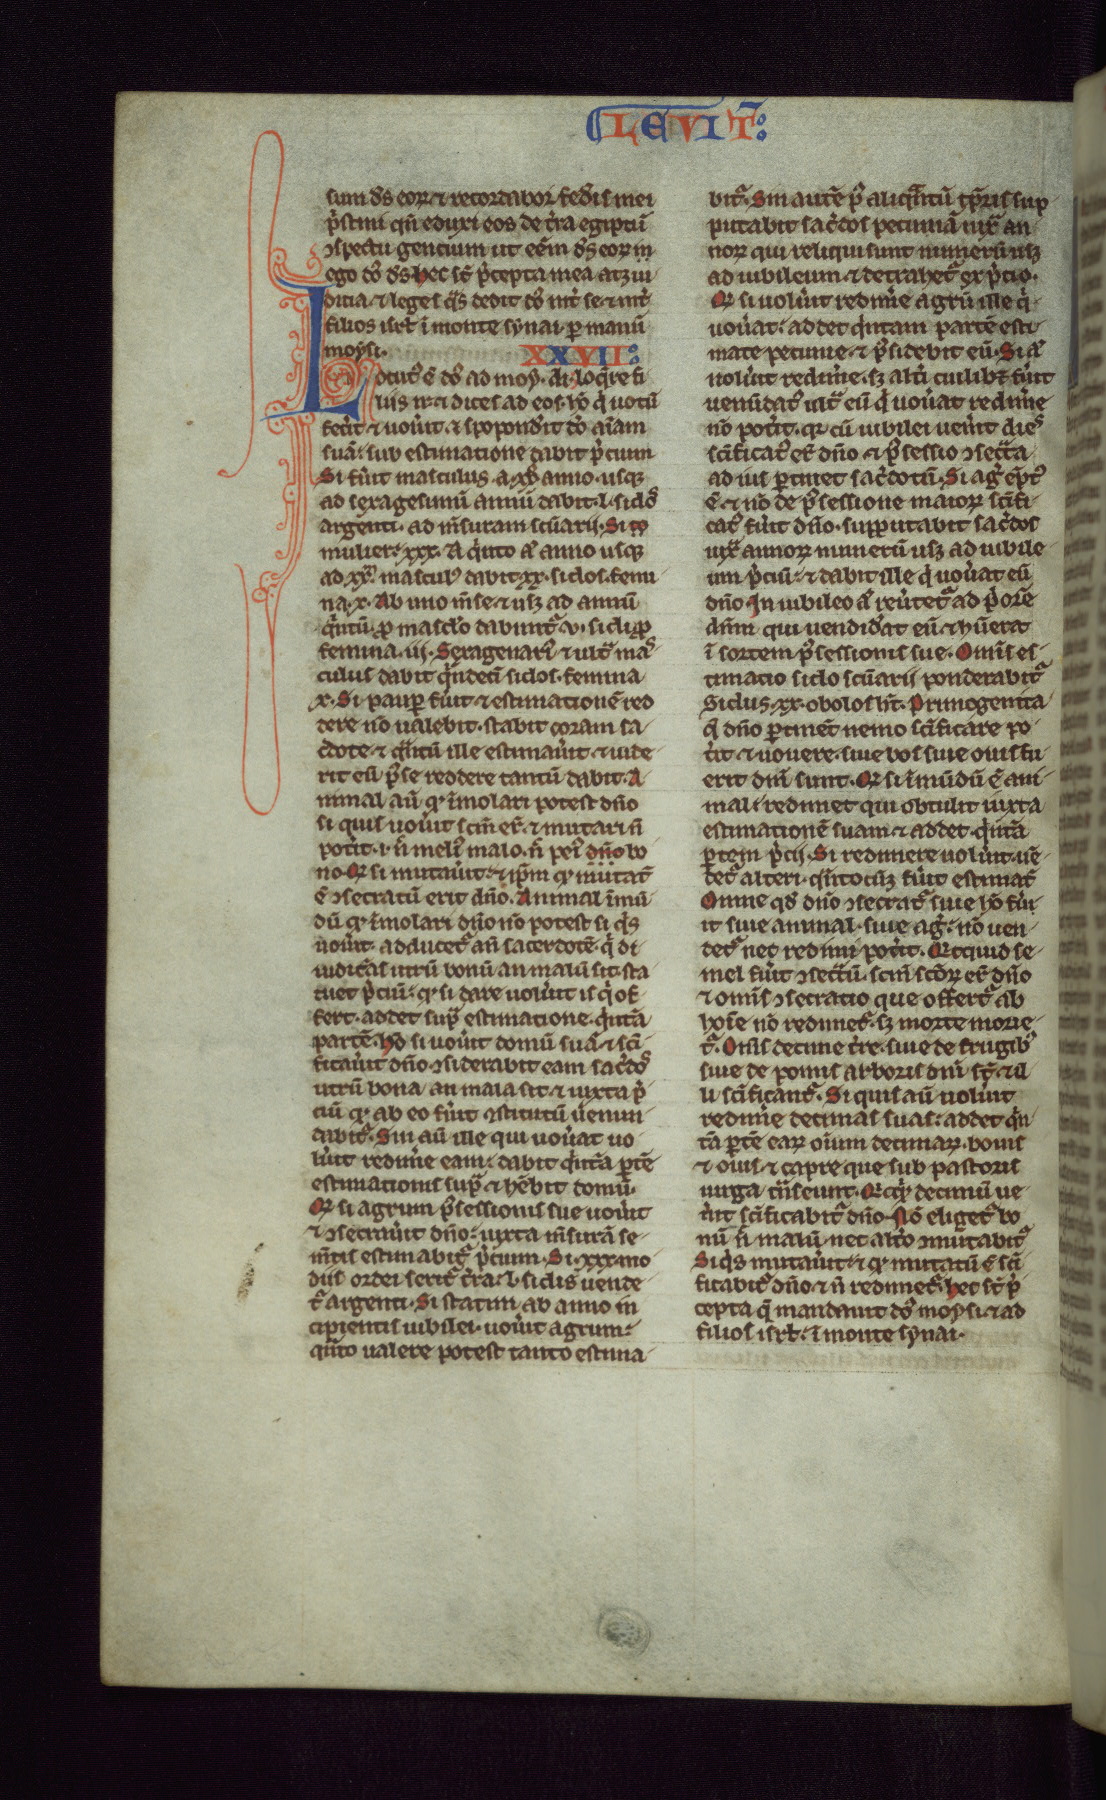 LEVIT᷒:
sum ds̄ eoꝝ. ⁊ recordabor fed̕is mei
p̕stini qn̄ eduxi eos de t̕ra egipti ī
ↄspectu gentium ut eēm ds̄ eoꝝ
ego dō ds̄ hec st̄ p̕cepta mea atꝫ iu
dicia ⁊ leges q̄s dedit dō int̕ se ⁊ int̕
filios isrl̄ ī monte synai ꝑ manū
moysi. XXVII:
Locut᷒ ē dō ad moy. di. loq̕re fi
liis isr̄. ⁊ dices ad eos. hō q̕ votū
fec̕it ⁊ voū̕it. ⁊ spopond̕it dō aīam
suā. sub estimatione dabit p̕cium
Si fū̕it masculus. a. xx̊ anno. usqꝫ
ad sexagesimū annū dabit. l. siclos
argenti. ad m̄suram scūarii. Si
mulier. xxx. A q̕nto aū anno usqꝫ
ad xx᷒ masculus dabit xx. siclos. femi
na. x. Ab uno m̄se ⁊ usꝫ ad annū
q̕ntū. ꝓ masclo dabunt᷒ v. sicli ꝓ
femina. iii. Sexagenari᷒ ⁊ ult̕ mas
culus dabit q̕ndeci siclos. femina
x. Si pauꝑ fū̕it ⁊ estimationē red
dere nō valebit. stabit coram sa
c̕dote ⁊ q̄ntū ille estimaū̕it ⁊ vide
rit eū posse reddere tantū dabit. A
nimal aū qd̕ īmolari potest dn̄o
si quis voū̕it scm̄ er̄. ⁊ mutari n̄
pot̕it. i. n̄ meli᷒ malo. n̄ pei᷒ dn̄o bo
no. Qd̕ si mutaū̕it. ⁊ ipm̄ qd̕ mutat̄
ē ↄsecratū erit dn̄o. Animal īmū
dū qd̕ īmolari dn̄o nō potest si q̕s
voū̕it. adducet᷒ an̄ sacerdotē. q̕ di
iudicās utrū bonū an malū sit. sta
tuet p̕ciū. qd̕ si dare volū̕it is q̕ of
fert. addet sup̄ estimatione. q̕ntā
partē. hō si voū̕it domū suā ⁊ scī
ficaū̕it dn̄o ↄsiderabit eam sac̕dos
utrū bona an mala sit ⁊ iuxta p̕
ciū qd̕ ab eo fū̕it ↄstitutū venun
dabit᷒. Sin aū ille qui voū̕at vo
lū̕it redim̕e eam. dabit q̕ntā ꝑtē
estimationis sup̄ ⁊ hēbit domū.
Qd̕ si agrum possessionis sue voū̕it
⁊ ↄsecraū̕it dn̄o. iuxta m̄surā se
m̄tis estimabit᷒ p̕cium. Si. xxx. mo
diis ordei serit᷒ t̕ra. l. siclis vende
t᷒ argenti. Si statim ab anno in
cipientis iubilei. voū̕it agrum.
q̄nto valere potest tanto estima
bit᷒. Sin autē p᷒ aliq̄ntū tꝑis sup
putabit sac̕dos pecuniā iux̄ an
noꝝ qui reliqui sunt numerū usꝫ
ad iubileum ⁊ detrahet᷒ ex p̕cio.
Qd̕ si volū̕it redim̕e agrū ille q̕
voū̕at. addet q̕ntam partē esti
mate pecunie. ⁊ possidebit eū. Si aū
nolū̕it redim̕e. sꝫ alt̕i cuilibꝫ fū̕it
venūdat᷒. ult̕ eū q̕ voū̕at redim̕e
nō pot̕it. qr cū iubilei ven̕it dies
scīficat᷒ er̄ dn̄o ⁊ possessio ↄsec̕ta
ad ius ꝑtinet sac̕dotū. Si ag̕ ēpt᷒
ē. ⁊ nō de possessione maioꝝ scīfi
cat᷒ fū̕it dn̄o. supputabit sac̕dos
iux̄ annoꝝ numerū usꝫ ad iubile
um p̕ciū. ⁊ dabit ille q̕ voū̕at eū
dn̄o. In iubileo aū reū̕tet᷒ ad p̕orē
dn̄m qui vendid̕at eū ⁊ hūerat
ī sortem possessionis sue. Omīs es
timatio siclo scūarii ponderabit᷒
Siclus. xx. obolos ht̄. Primogenita
q̄ dn̄o ꝑtinēt nemo scīficare po
t̕it ⁊ vovere. sive bos sive ovis fu
erit dn̄i sunt. Qd̕ si īmūdū ē ani
mal. redimet qui obtulit iuxta
estimationē suam ⁊ addet. q̕ntā
ꝑtem p̕cii. Si redimere nolū̕it. vē
det᷒ alteri. q̄ntocūqꝫ fū̕it estimat̄
Omne qd̕ dn̄o ↄsecrat᷒ sive hō fū̕
it sive animal. sive ag̕. nō ven
det᷒ nec redimi pot̕it. Qicquid se
mel fū̕it ↄsec̕tū. scm̄ scōꝝ er̄ dn̄o
⁊ omīs ↄsecratio que offert᷒ ab
hoīe nō redimet᷒. sꝫ morte morie
t᷒. Om̄s decime t̕re. sive de frugibꝫ
sive de pomis arboris dn̄i st̄ ⁊ il
li scīficant᷒. Si quis aū volū̕it
redim̕e decimas suas. addet q̕n
tā ꝑtē eaꝝ oīum decimaꝝ. bovis
⁊ ovis. ⁊ capre que sub pastoris
virga t̄nseunt. Qicqd̕ decimū ve
n̕it scīficabit᷒ dn̄o. Nō eliget᷒ bo
nū n̄ malū. nec alt̕o ↄmutabit᷒
Si q̕s mutaū̕it. ⁊ qd̕ mutatū ē scī
ficabit᷒ dn̄o ⁊ n̄ redimet᷒. hec st̄ p̕
cepta q̄ mandavit dō moysi. ⁊ ad
filios isrl̄. ī monte synai.